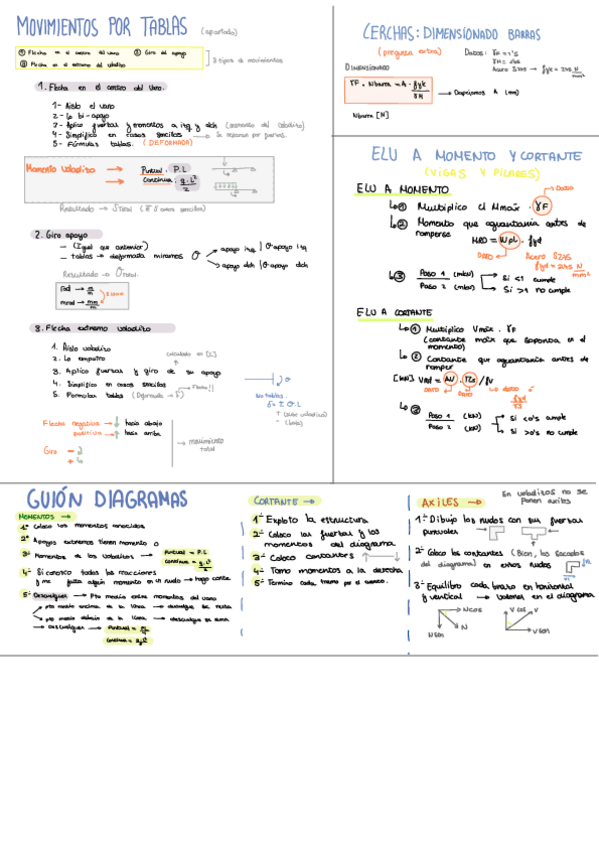 MOVIMIENTOS POR TABLAS (apartado)
① Flecha en el centro del vano ② Giro del apoyo
③ Flecha en el extremo del voladizo
3 tipos de movimientos
1. Flecha en el centro del vano.
1- Aislo el vano
2- Lo bi-apoyo
3- Aplico fuerzas y momentos a izq y dch (momento del voladizo)
4- Simplifico en casos sencillos → Se separan por fuerzas.
5- Fórmulas tablas. (DEFORMADA)
Momento voladizo → Puntual: P.L
→ Continua: q.L²/2
Resultado → δTOTAL
2. Giro apoyo
- (Igual que anterior)
- tablas → deformada miramos θ
apoyo izq | θ apoyo izq
apoyo dch | θ apoyo dch
Resultado → θTOTAL
rad → m/m
mrad → mm/m
3. Flecha extremo voladizo
1. Aislo voladizo
2. Lo empotro
calculado en [2]
3. Aplico fuerzas y giro de su apoyo
4. Simplifico en casos sencillos
5. Formulas tablas (Deformada → δ)
Flecha!!
sin tablas
δ = ± θ.L
Flecha negativa → ↓ hacia abajo
positiva → ↑ hacia arriba
Giro
movimiento
total
CERCHAS: DIMENSIONADO BARRAS
(pregunta extra)
Datos:
DIMENSIONADO
γF · Nbarra = A · fyk/γM → Despejamos A
Nbarra [N]
ELU A MOMENTO Y CORTANTE
(VIGAS Y PILARES)
ELU A MOMENTO
DATO
① Multiplico el Mmáx · γF
② Momento que aguantaría antes de
romperse
MRD = Wpl · fyd
DATO Acero S245
③ Paso 1 (mkN) / Paso 2 (mkN)
Si <1 cumple
Si >1 no cumple
ELU A CORTANTE
① Multiplico Vmáx · γF
(cortante máx que soporta en el
momento)
② Cortante que aguantaría antes de
romper
DATO DATO
③ Paso 1 (kN) / Paso 2 (kN)
Si <0's cumple
Si >0's no cumple
GUIÓN DIAGRAMAS
MOMENTOS →
1º Coloco los momentos conocidos
2º Apoyos extremos tienen momento 0
3º Momentos de los voladizos → Puntual = P.L
Continua = q.L²/2
4º Si conozco todas las reacciones
y me falta algún momento en un nudo → hago corte
5º Descuelgues → Pto medio entre momentos del vano
→ pto medio encima de la línea → descuelgue se resta
→ pto medio debajo de la línea → descuelgue se suma
→ Descuelgue
CORTANTE →
1º Exploto la estructura
2º Coloco las fuerzas y los
momentos del diagrama
3º Coloco cortantes
4º Tomo momentos a la derecha
5º Termino cada tramo por el mismo.
AXILES →
En voladizos no se
ponen axiles
1º Dibujo los nudos con sus fuerzas
puntuales
2º Coloco los cortantes (Bien, los sacados
del diagrama) en estos nudos
3º Equilibro cada brazo en horizontal
y vertical → volcar en el diagrama
N cos
N sen
N
V cos
V
V sen